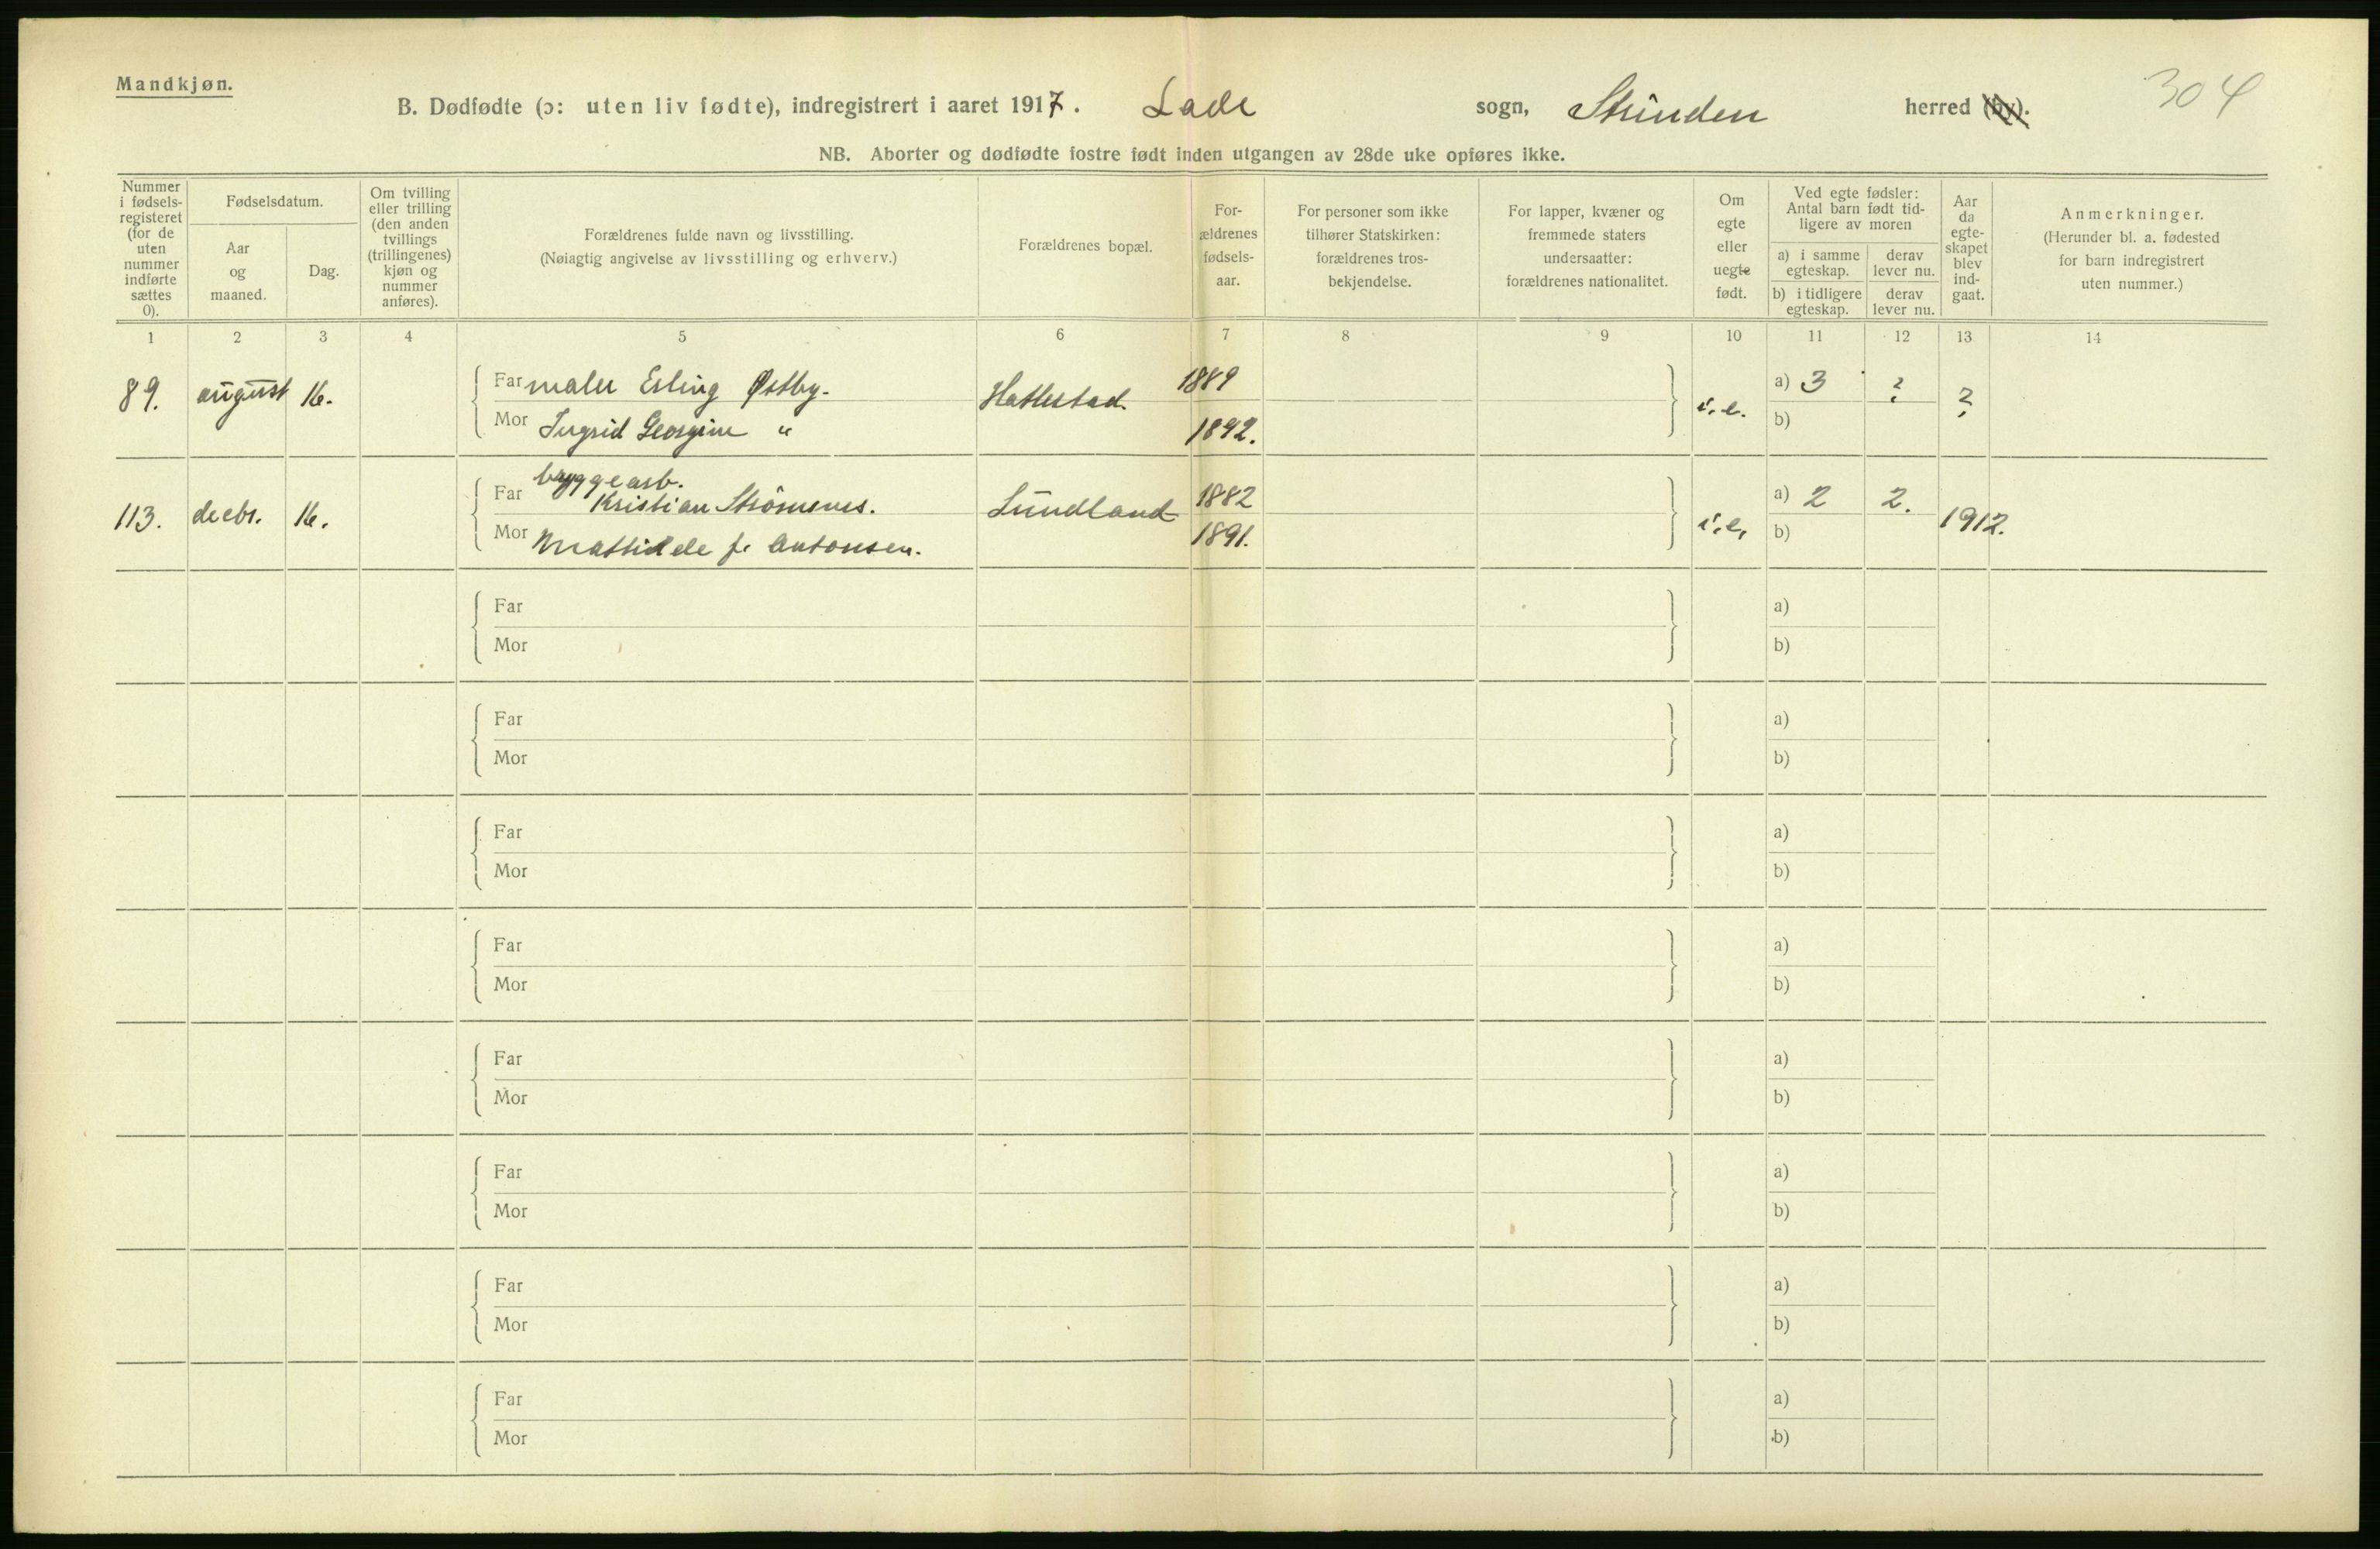 Mandkjøn.
304
B. Dødfødte (ɔ: uten liv fødte), indregistrert i aaret 1917. Lade sogn, Strinden herred (by).
NB. Aborter og dødfødte fostre født inden utgangen av 28de uke opføres ikke.
Nummer i fødsels-registeret (for de uten nummer indførte sættes 0).
Fødselsdatum.
Aar og maaned.
Dag.
Om tvilling eller trilling (den anden tvillings (trillingenes) kjøn og nummer anføres).
Forældrenes fulde navn og livsstilling.
(Nøiagtig angivelse av livsstilling og erhverv.)
Forældrenes bopæl.
For-ældrenes fødsels-aar.
For personer som ikke tilhører Statskirken: forældrenes tros-bekjendelse.
For lapper, kvæner og fremmede staters undersaatter: forældrenes nationalitet.
Om egte eller uegte født.
Ved egte fødsler: Antal barn født tid-ligere av moren
a) i samme egteskap.
derav lever nu.
b) i tidligere egteskap.
derav lever nu.
Aar da egte-skapet blev ind-gaat.
Anmerkninger.
(Herunder bl. a. fødested for barn indregistrert uten nummer.)
1 2 3 4 5 6 7 8 9 10 11 12 13 14
89. august 16. Far maler Erling Østby. Hatlestad. 1889 i.e. a) 3 ? ?
Mor Ingrid Georgine " 1892. b)
byggearb.
113. decbr. 16. Far Kristian Strömsnes. Lundland 1882 i.e. a) 2 2. 1912.
Mor Mathilde f. Antonsen. 1891. b)
Far a)
Mor b)
Far a)
Mor b)
Far a)
Mor b)
Far a)
Mor b)
Far a)
Mor b)
Far a)
Mor b)
Far a)
Mor b)
Far a)
Mor b)